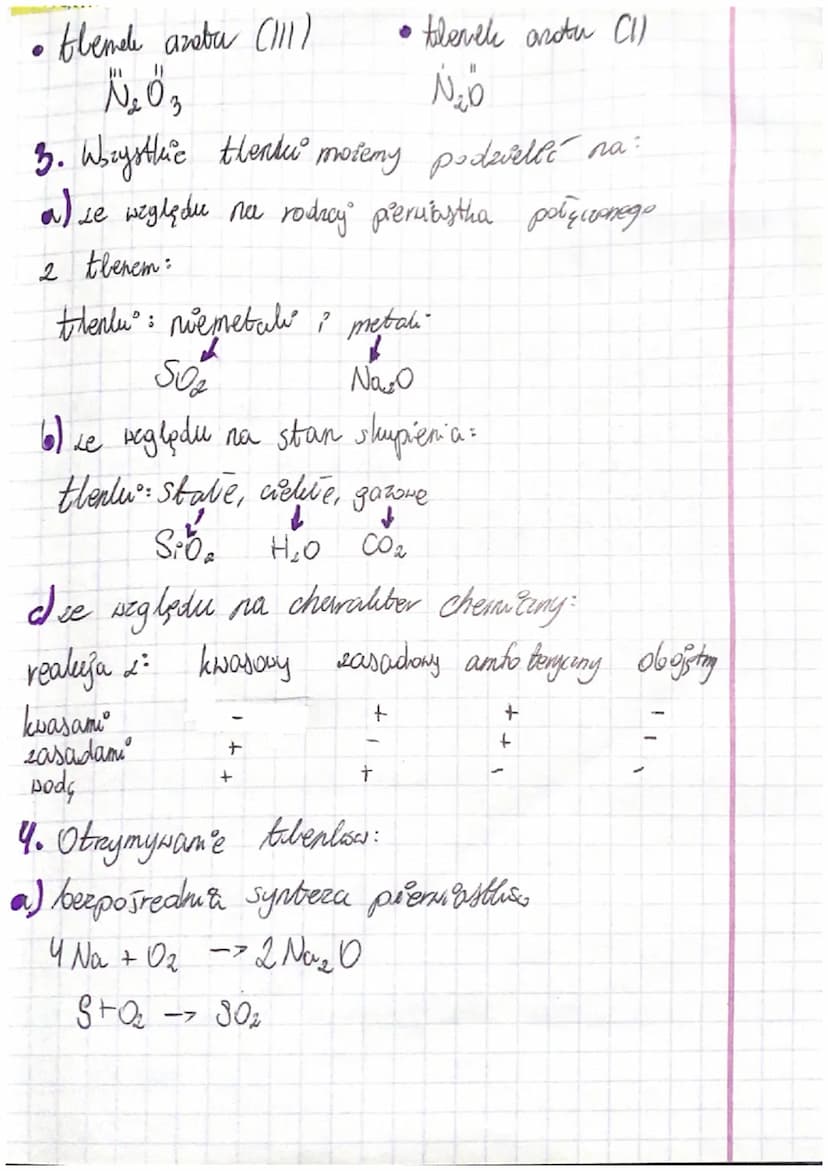 • tlenek azotu (III) • tlenek azotu (I)
III II I II
N₂O₃ N₂O
3. Wszystkie tlenki możemy podzielić na:
a) ze względu na rodzaj pierwiastka połączonego
z tlenem:
tlenki: niemetali i metali
SO₂ Na₂O
b) ze względu na stan skupienia:
tlenki: stałe, ciekłe, gazowe
SiO₂ H₂O CO₂
c) ze względu na charakter chemiczny:
reakcja z: kwasowy zasadowy amfoteryczny obojętny
kwasami - + + -
zasadami + - + -
wodą + + - -
4. Otrzymywanie tlenków:
a) bezpośrednia synteza pierwiastków
4 Na + O₂ -> 2 Na₂O
S + O₂ -> SO₂